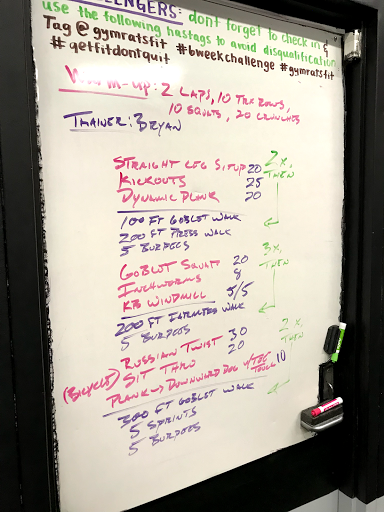 LLENGERS: dont forget to check in &
use the following hastags to avoid disqualification
Tag @gymratsfit #6weekchallenge #gymratsfit
# getfitdontquit
Warm-up: 2 LAPS, 10 TRX ROWS,
10 SQUATS, 20 CRUNCHES
TRAINER: BRYAN
STRAIGHT LEG SITUP 20 2x,
KICKOUTS 25 THEN
DYNAMIC PLANK 20
100 FT GOBLET WALK
200 FT PRESS WALK
5 BURPEES
GOBLET SQUAT 20 3x,
INCHWORMS 8 THEN
KB WINDMILL 5/5
200 FT FARMERS WALK
5 BURPEES
RUSSIAN TWIST 30 2x,
(Bicycle) SIT THRU 20 THEN
PLANK -> DOWNWARD DOG w/TOE TOUCH 10
300 FT GOBLET WALK
5 SPRINTS
5 BURPEES